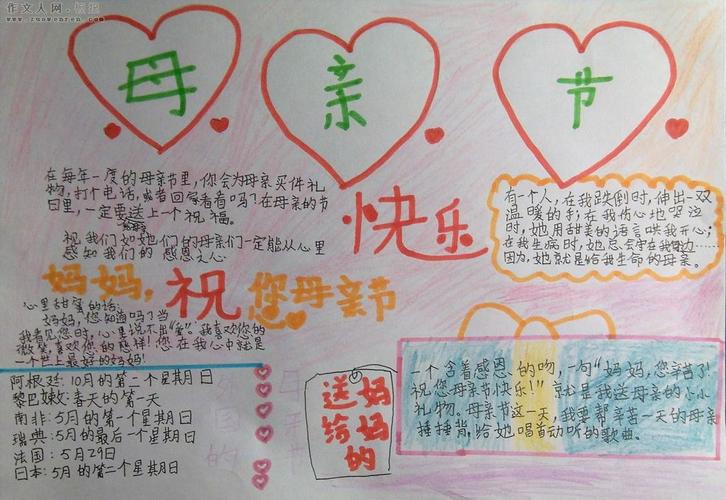 作文人网
www.zuowenren.com
母 亲 节
在每年一度的母亲节里，你会为母亲买件礼
物，打个电话，或者回家看看吗？在母亲的节
日里，一定要送上一个祝福。
祝我们如她们的母亲们一定能从心里
感知我们的感恩之心
快乐
有一个人，在我跌倒时，伸出一双
温暖的手；在我伤心地哭泣
时，她用甜美的语言哄我开心；
在我生病时，她总会守在我身边……
因为，她就是给我生命的母亲。
妈妈，祝您母亲节
心里甜蜜的话：
妈妈，您知道吗？当
我看见您时，心里说不出"爱"。我喜欢您的
微笑喜欢您的慈祥！您在我心中就是
一个世上最好的妈妈！
阿根廷：10月的第二个星期日
黎巴嫩：春天的第一天
南非：5月的第一个星期日
瑞典：5月的最后一个星期日
法国：5月29日
日本：5月的第二个星期日
送给妈妈的
一个含着感恩的吻，一句"妈妈，您辛苦了！
祝您母亲节快乐！"就是我送母亲的小小
礼物。母亲节这一天，我要帮辛苦一天的母亲
捶捶背，给她唱首动听的歌曲。